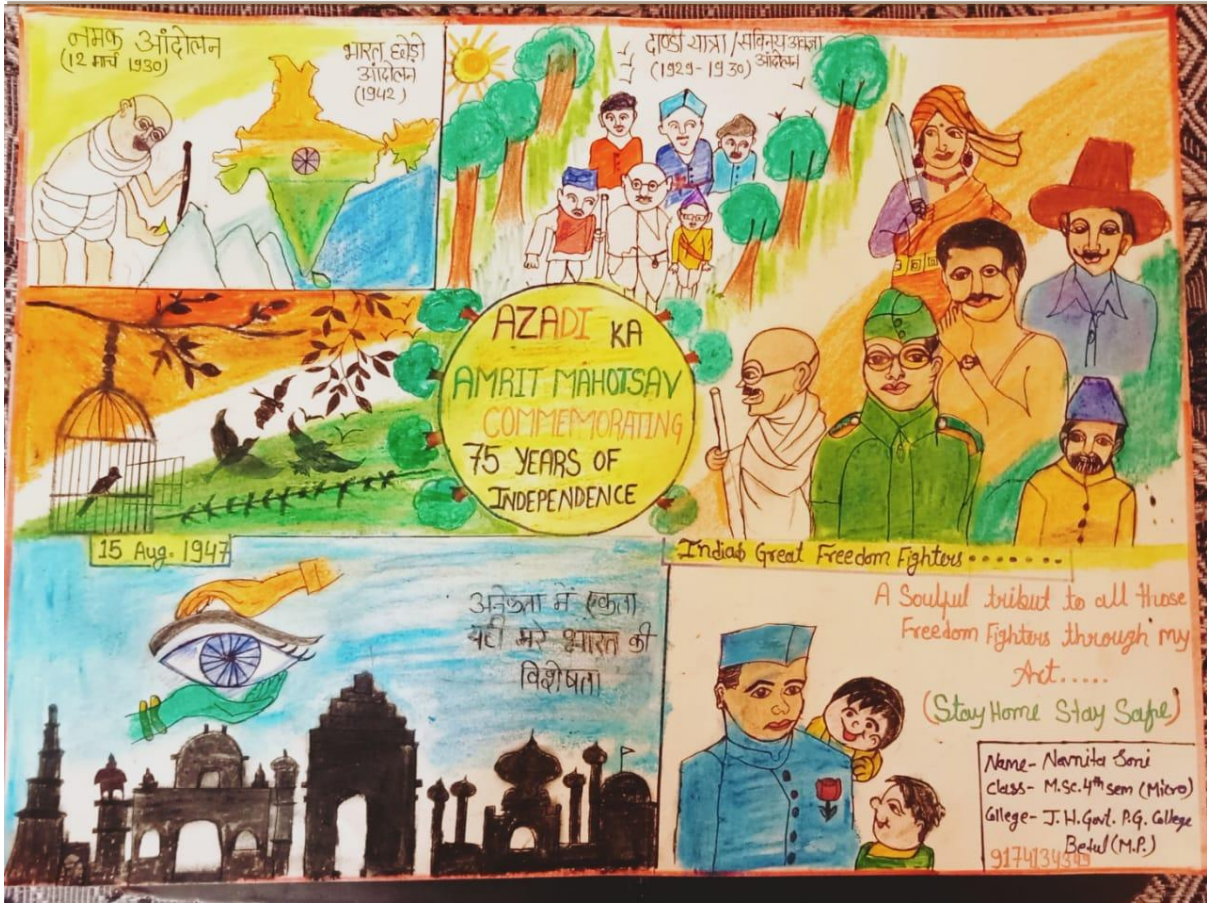 नमक आंदोलन
(12 मार्च 1930)
भारत छोड़ो
आंदोलन
(1942)
दाण्डी यात्रा/सविनय अवज्ञा
(1929-1930) आंदोलन
AZADI KA
AMRIT MAHOTSAV
COMMEMORATING
75 YEARS OF
INDEPENDENCE
15 Aug. 1947
India's Great Freedom Fighters.......
अनेकता में एकता
यही मेरे भारत की
विशेषता
A Soulful tribut to all those
Freedom Fighters through my
Art.....
(Stay Home Stay Safe)
Name- Navnita Soni
Class- M.Sc. 4th sem (Micro)
College- J.H. Govt. P.G. College
Betul (M.P.)